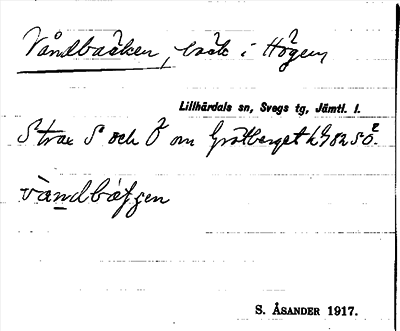 Våndbäcken, bäck i Högen
Lillhärdals sn, Svegs tg, Jämtl. l.
Strax S och Ö om Gråtberget
vandbäʃʃen
S. ÅSANDER 1917.